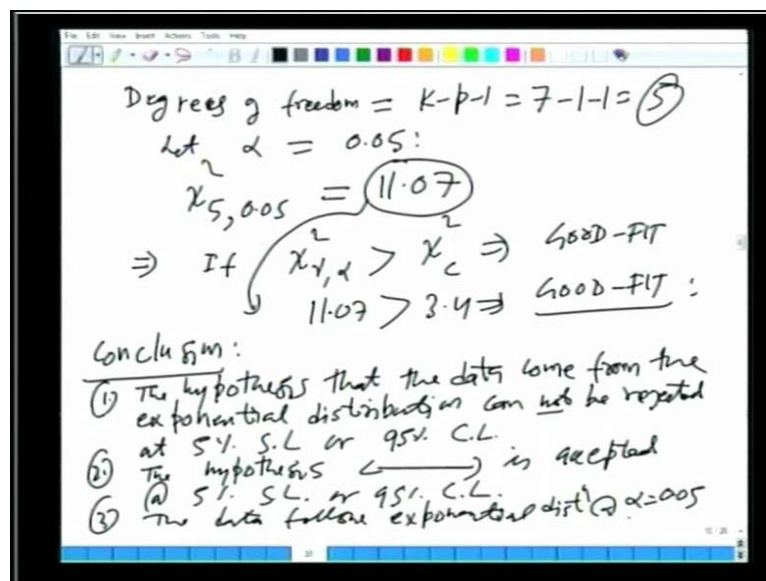 File Edit View Insert Actions Tools Help
Degrees of freedom = K-p-1 = 7-1-1 = 5
Let α = 0.05:
χ²5,0.05 = 11.07
⇒ If χ²γ,α > χ²c ⇒ GOOD-FIT
11.07 > 3.4 ⇒ GOOD-FIT:
Conclusion:
① The hypothesis that the data come from the
exponential distribution can not be rejected
at 5% S.L or 95% C.L.
② The hypothesis ⟷ is accepted
@ 5% SL. or 95% C.L.
③ The data follow exponential distⁿ @ α=0.05